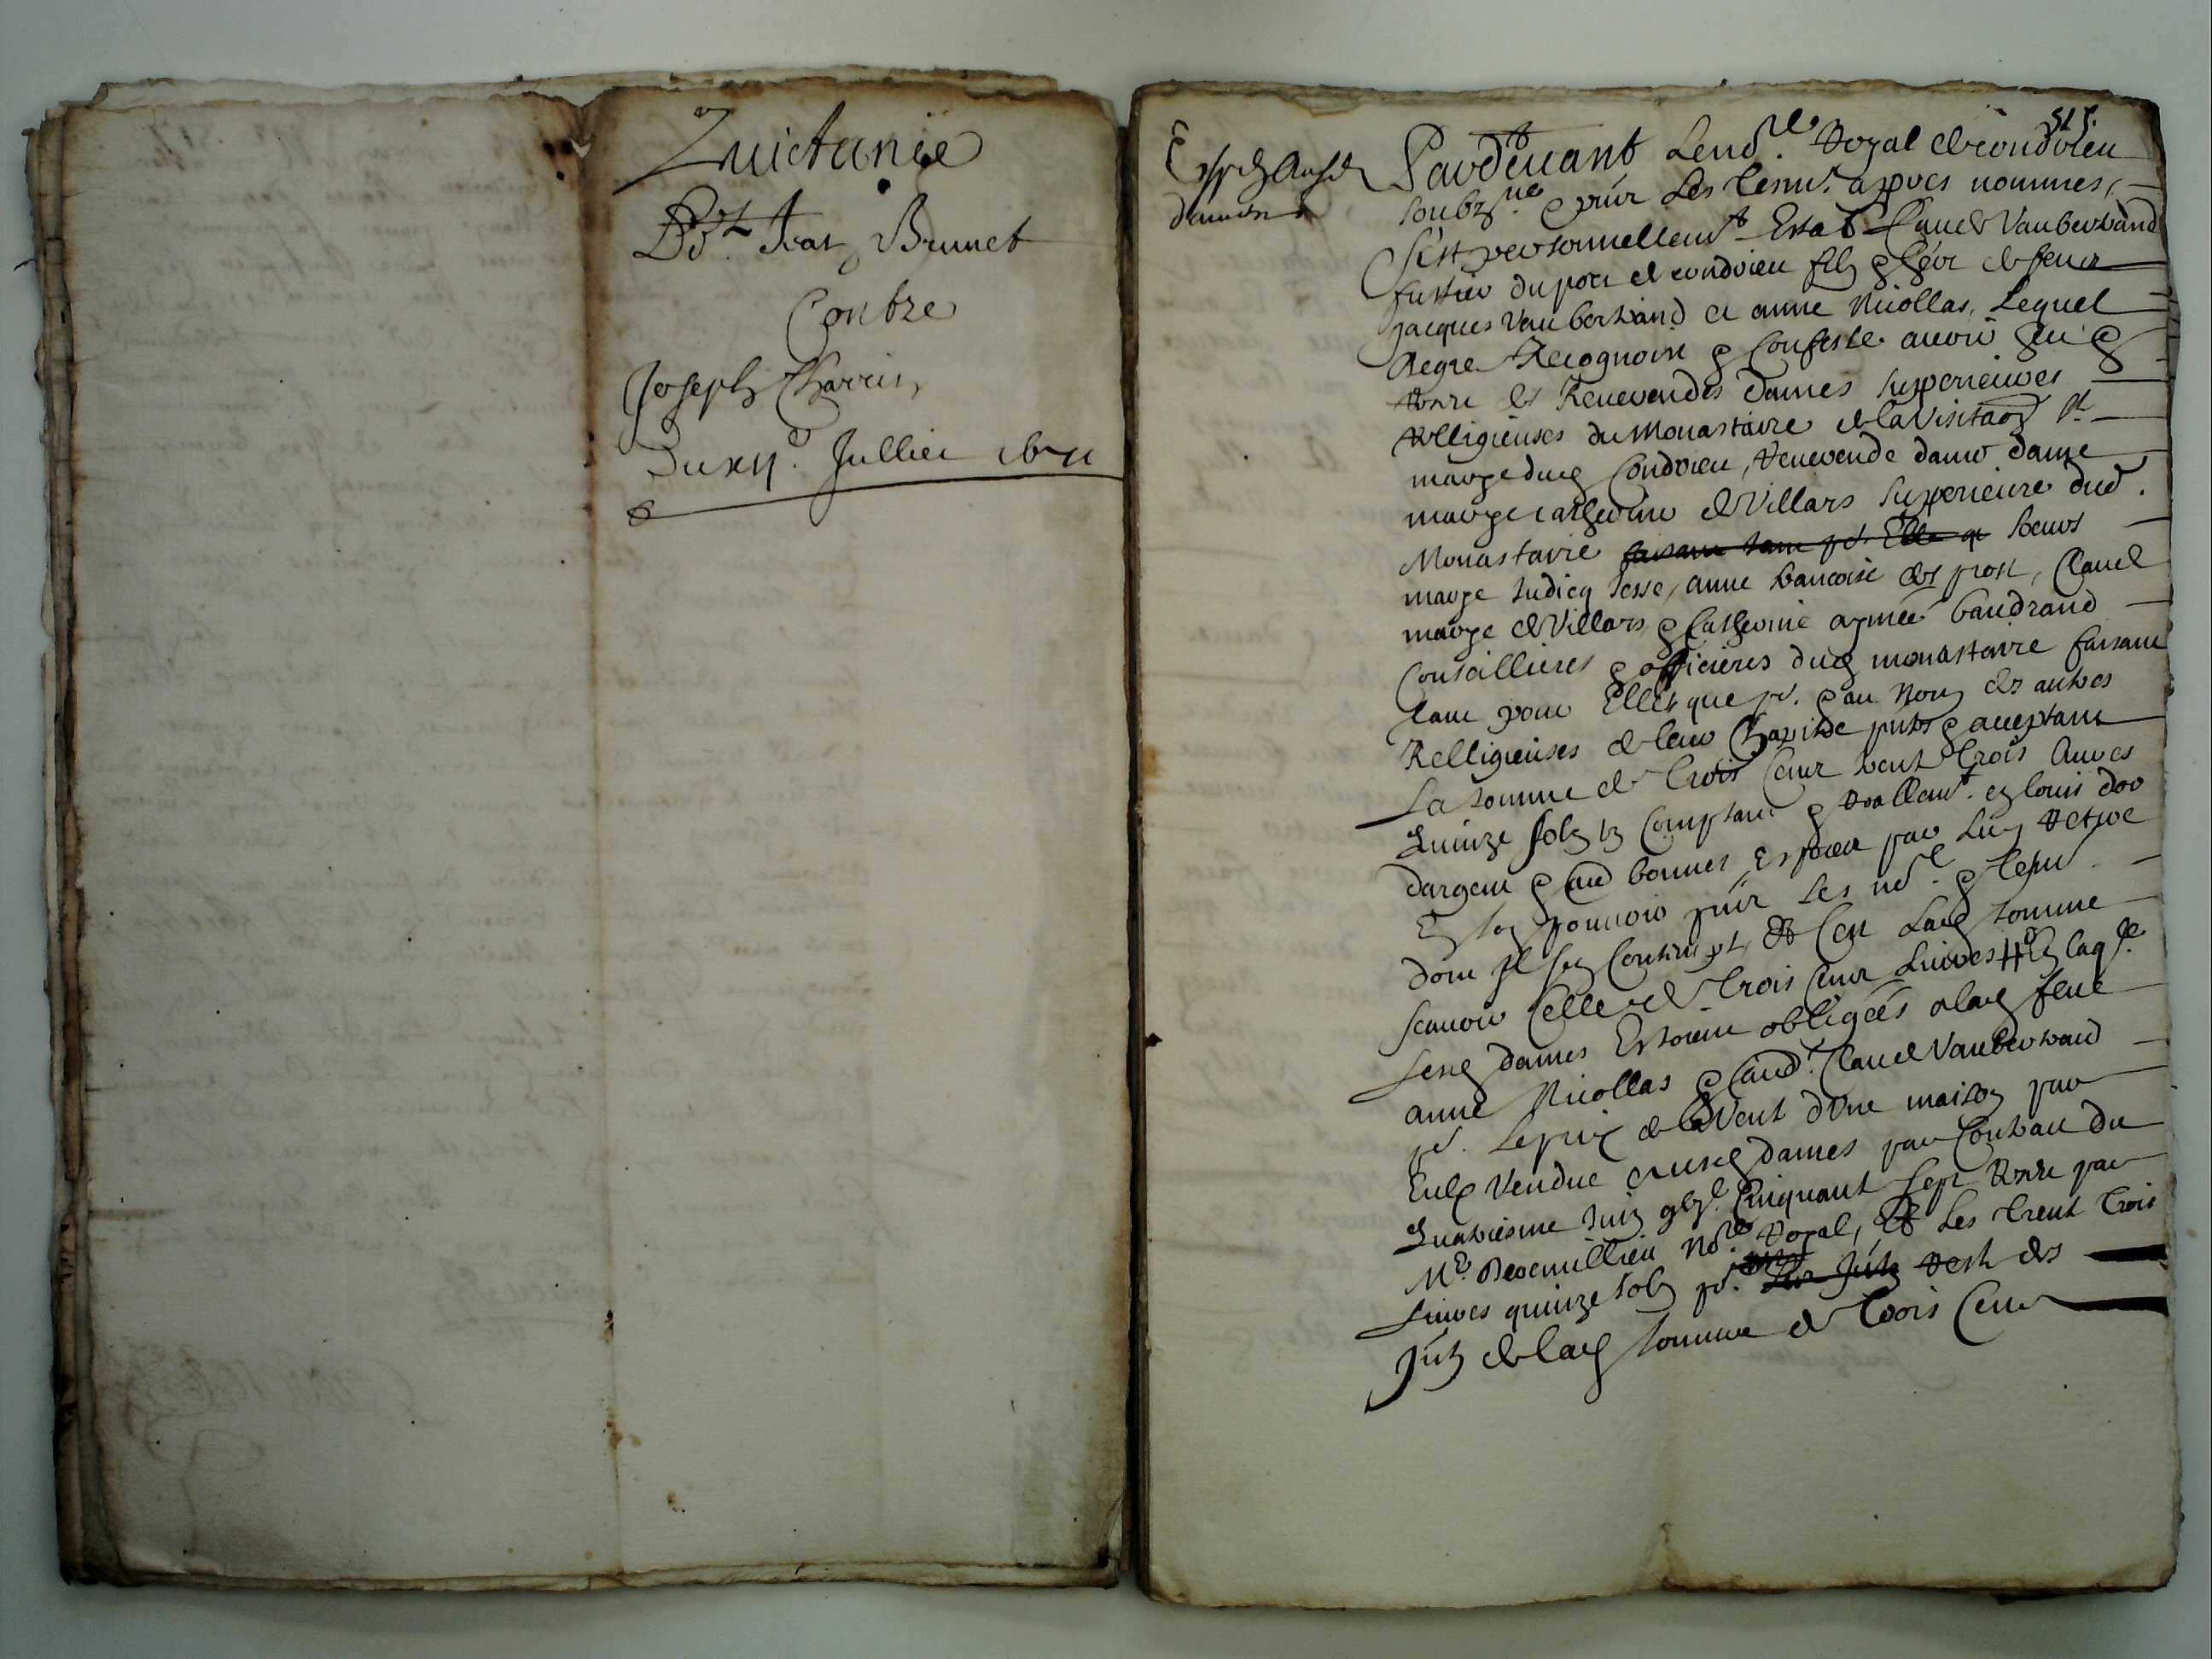 Quictance
Pr. Jean Brunet
Contre
Joseph Charvin
Du xii. Juillet 16
515.
Pardevant Le nore. Royal de condrieu
soubzne. & pnt Les tesm. appres nommes,
s'est personnellemt Estably Claude Vaubertrand
fustier du port de condrieu filz & her de feu
Jacques Vaubertrand et anne Nicollas, Lequel
de gre Recognoist & Confesse avoir heu &
Receu des Reverendes dames superieures
Relligieuses du Monastaire de la Visitaon Ste
marye dud Condrieu, Reverende dame dame
marye catherine de Villars superieure dud.
Monastaire soeurs
marye Judicq anne francoise des Claude
marye de Villars & Catherine aymée baudrand
Conseillieres & officieres dud monastaire faisant
tant pour Elles que pr. & au Nom des autres
Relligieuses de leur Chapitre pntes & acceptant
La somme de trois Cent trent trois livres
Quinze solz tz Comptant & reallemt. en louis dor
dargent & aud bonnes Especes par Luy Retire
En son pouvoir pnt Les nore. & tesm.
dont Il sen Contente, Et Cest Lad somme
scavoir Celle de trois Cent Livres En laqle.
lesd dames Estoient obligées a lad feue
anne Nicollas & aud. Claude Vaubertrand
pr. Le prix de la Vente dune maison par
Eulx Vendue ausd dames par Contract du
Quatriesme Juin Cinquante sept Receu par
Me. Noe. Royal, Et Les trent trois
Livres quinze solz pr. rest des
Intz de lad somme de trois Cent